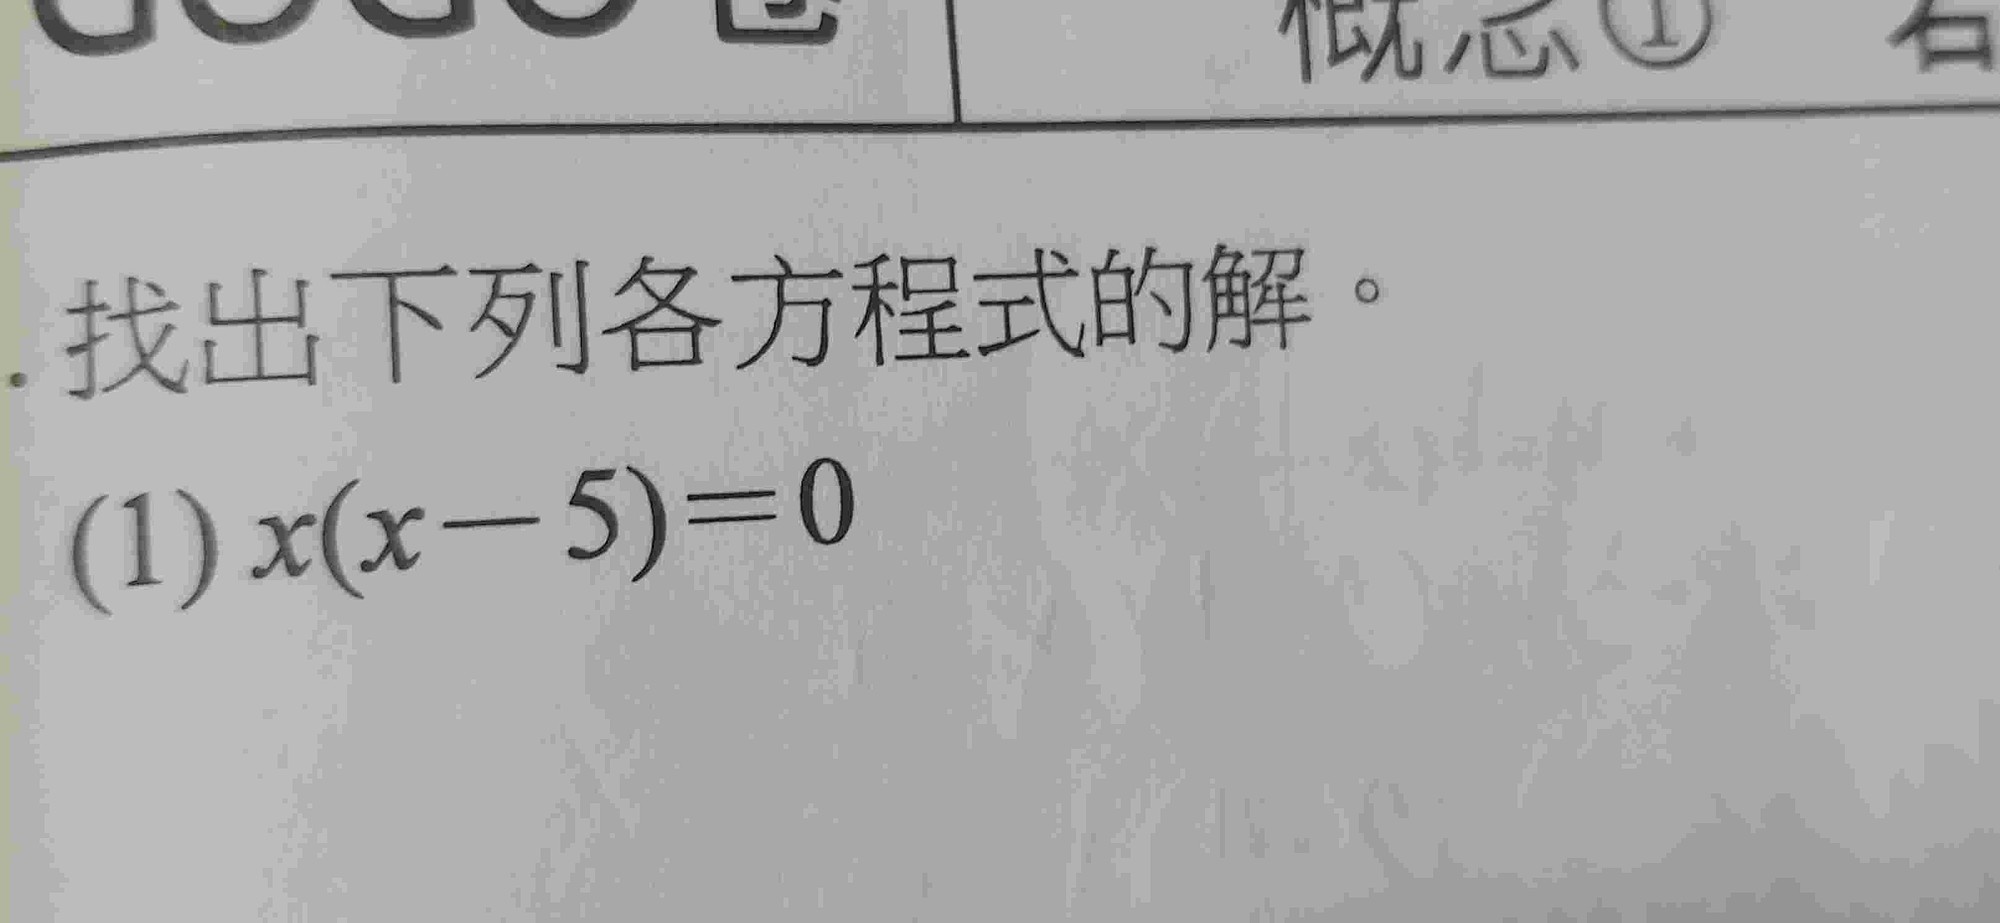 概念①
找出下列各方程式的解。
(1) x(x－5)＝0